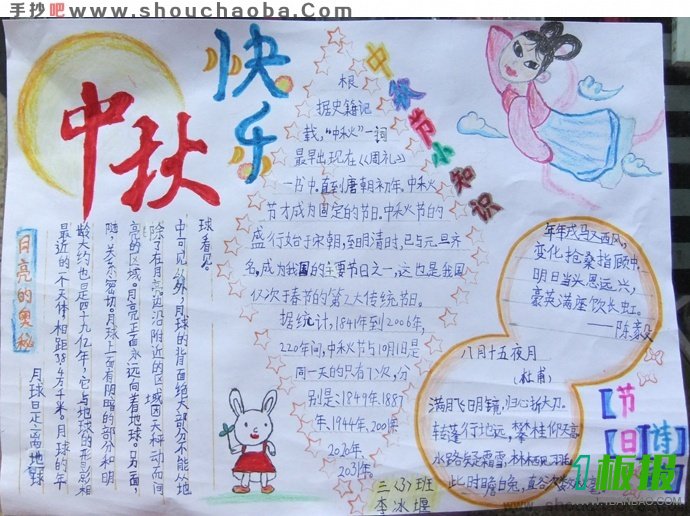 手抄吧 www.shouchaoba.com
中秋
快乐
中秋节小知识
根
据史籍记
载,"中秋"一词
最早出现在《周礼》
一书中。直到唐朝初年,中秋
节才成为固定的节日。中秋节的
盛行始于宋朝,到明清时,已与元旦齐
名,成为我国的主要节日之一,这也是我国
仅次于春节的第2大传统节日。
据统计,1841年到2006年,
220年间,中秋节与10月1日是
同一天的只有7次,分
别是:1849年、1887
年、1944年、2001年
2020年、
2031年。
月亮的奥秘
月球是距离地球
最近的一个天体,相距38.4万千米。月球的年
龄大约也是四十九亿年,它与地球的形影相
随,关系密切。月球上有阴暗的部分和明
亮的区域。月亮正面永远向着地球。另一面,
除了在月亮边沿附近的区域因天秤动而间
中可见以外,月球的背面绝大部分不能从地
球看见。
年年戎马入西风,
变化抢桑指顾中,
明日当头思远兴,
豪英满座饮长虹。
——陈毅
八月十五夜月
(杜甫)
满月飞日明镜,归心折大刀。
转蓬行地远,攀桂仰天高
水路疑霜雪,林栖
此时瞻白兔,直
【节日诗
三〈3〉班
李冰堰
1板报